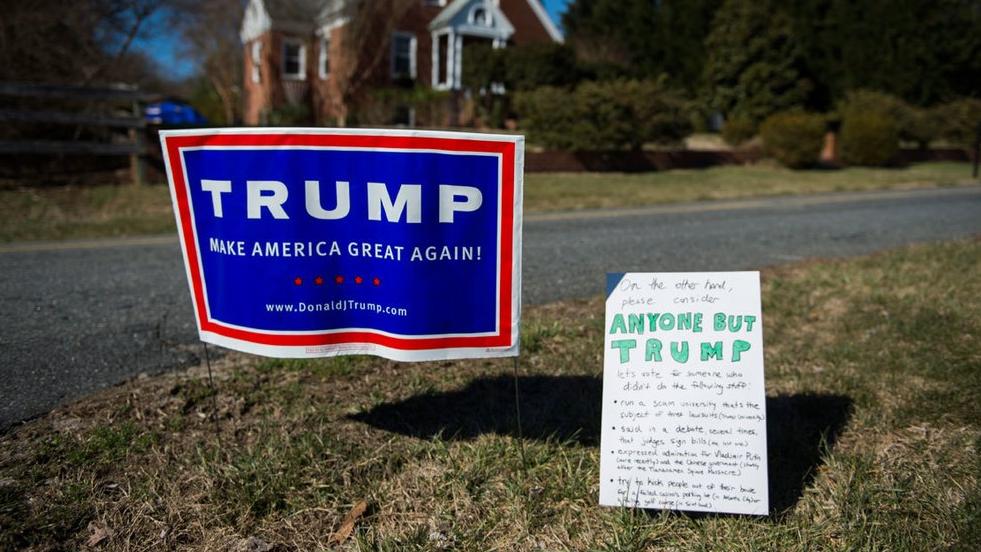 TRUMP
MAKE AMERICA GREAT AGAIN!
www.DonaldJTrump.com
On the other hand,
please consider
ANYONE BUT
TRUMP
let's vote for someone who
didn't do the following stuff:
• run a scam university that's the
subject of three lawsuits (Trump University)
• said in a debate, several times,
that judges sign bills
• expressed admiration for Vladimir Putin
(more recently) and the Chinese government (shortly
after the Tiananmen Square Massacre)
• try to kick people out of their home
for a failed casino's parking lot (in Atlantic City) or
a failing golf course (in Scotland)